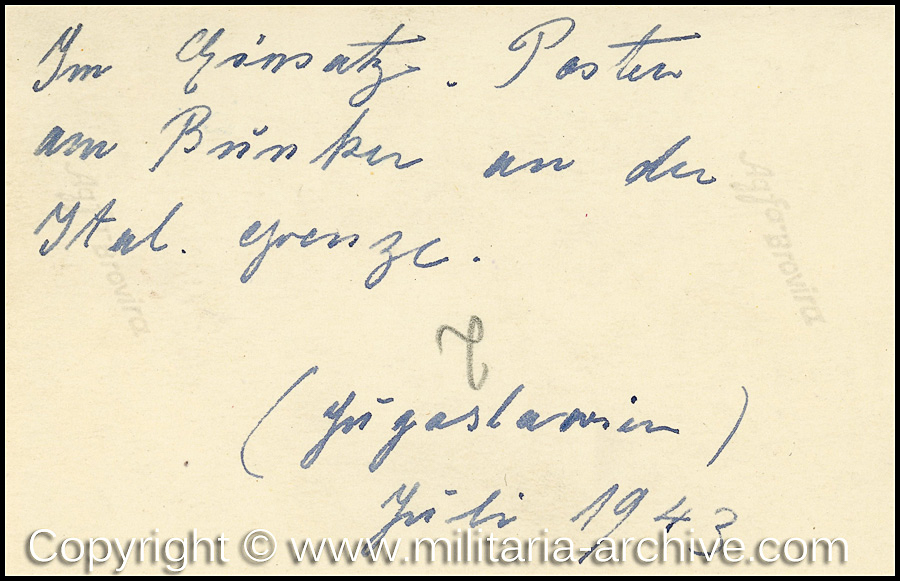 Im Einsatz. Posten
am Bunker an der
Ital. Grenze.
(Jugoslawien)
Juli 1943
Agfa Brovira
Agfa Brovira
Copyright © www.militaria-archive.com